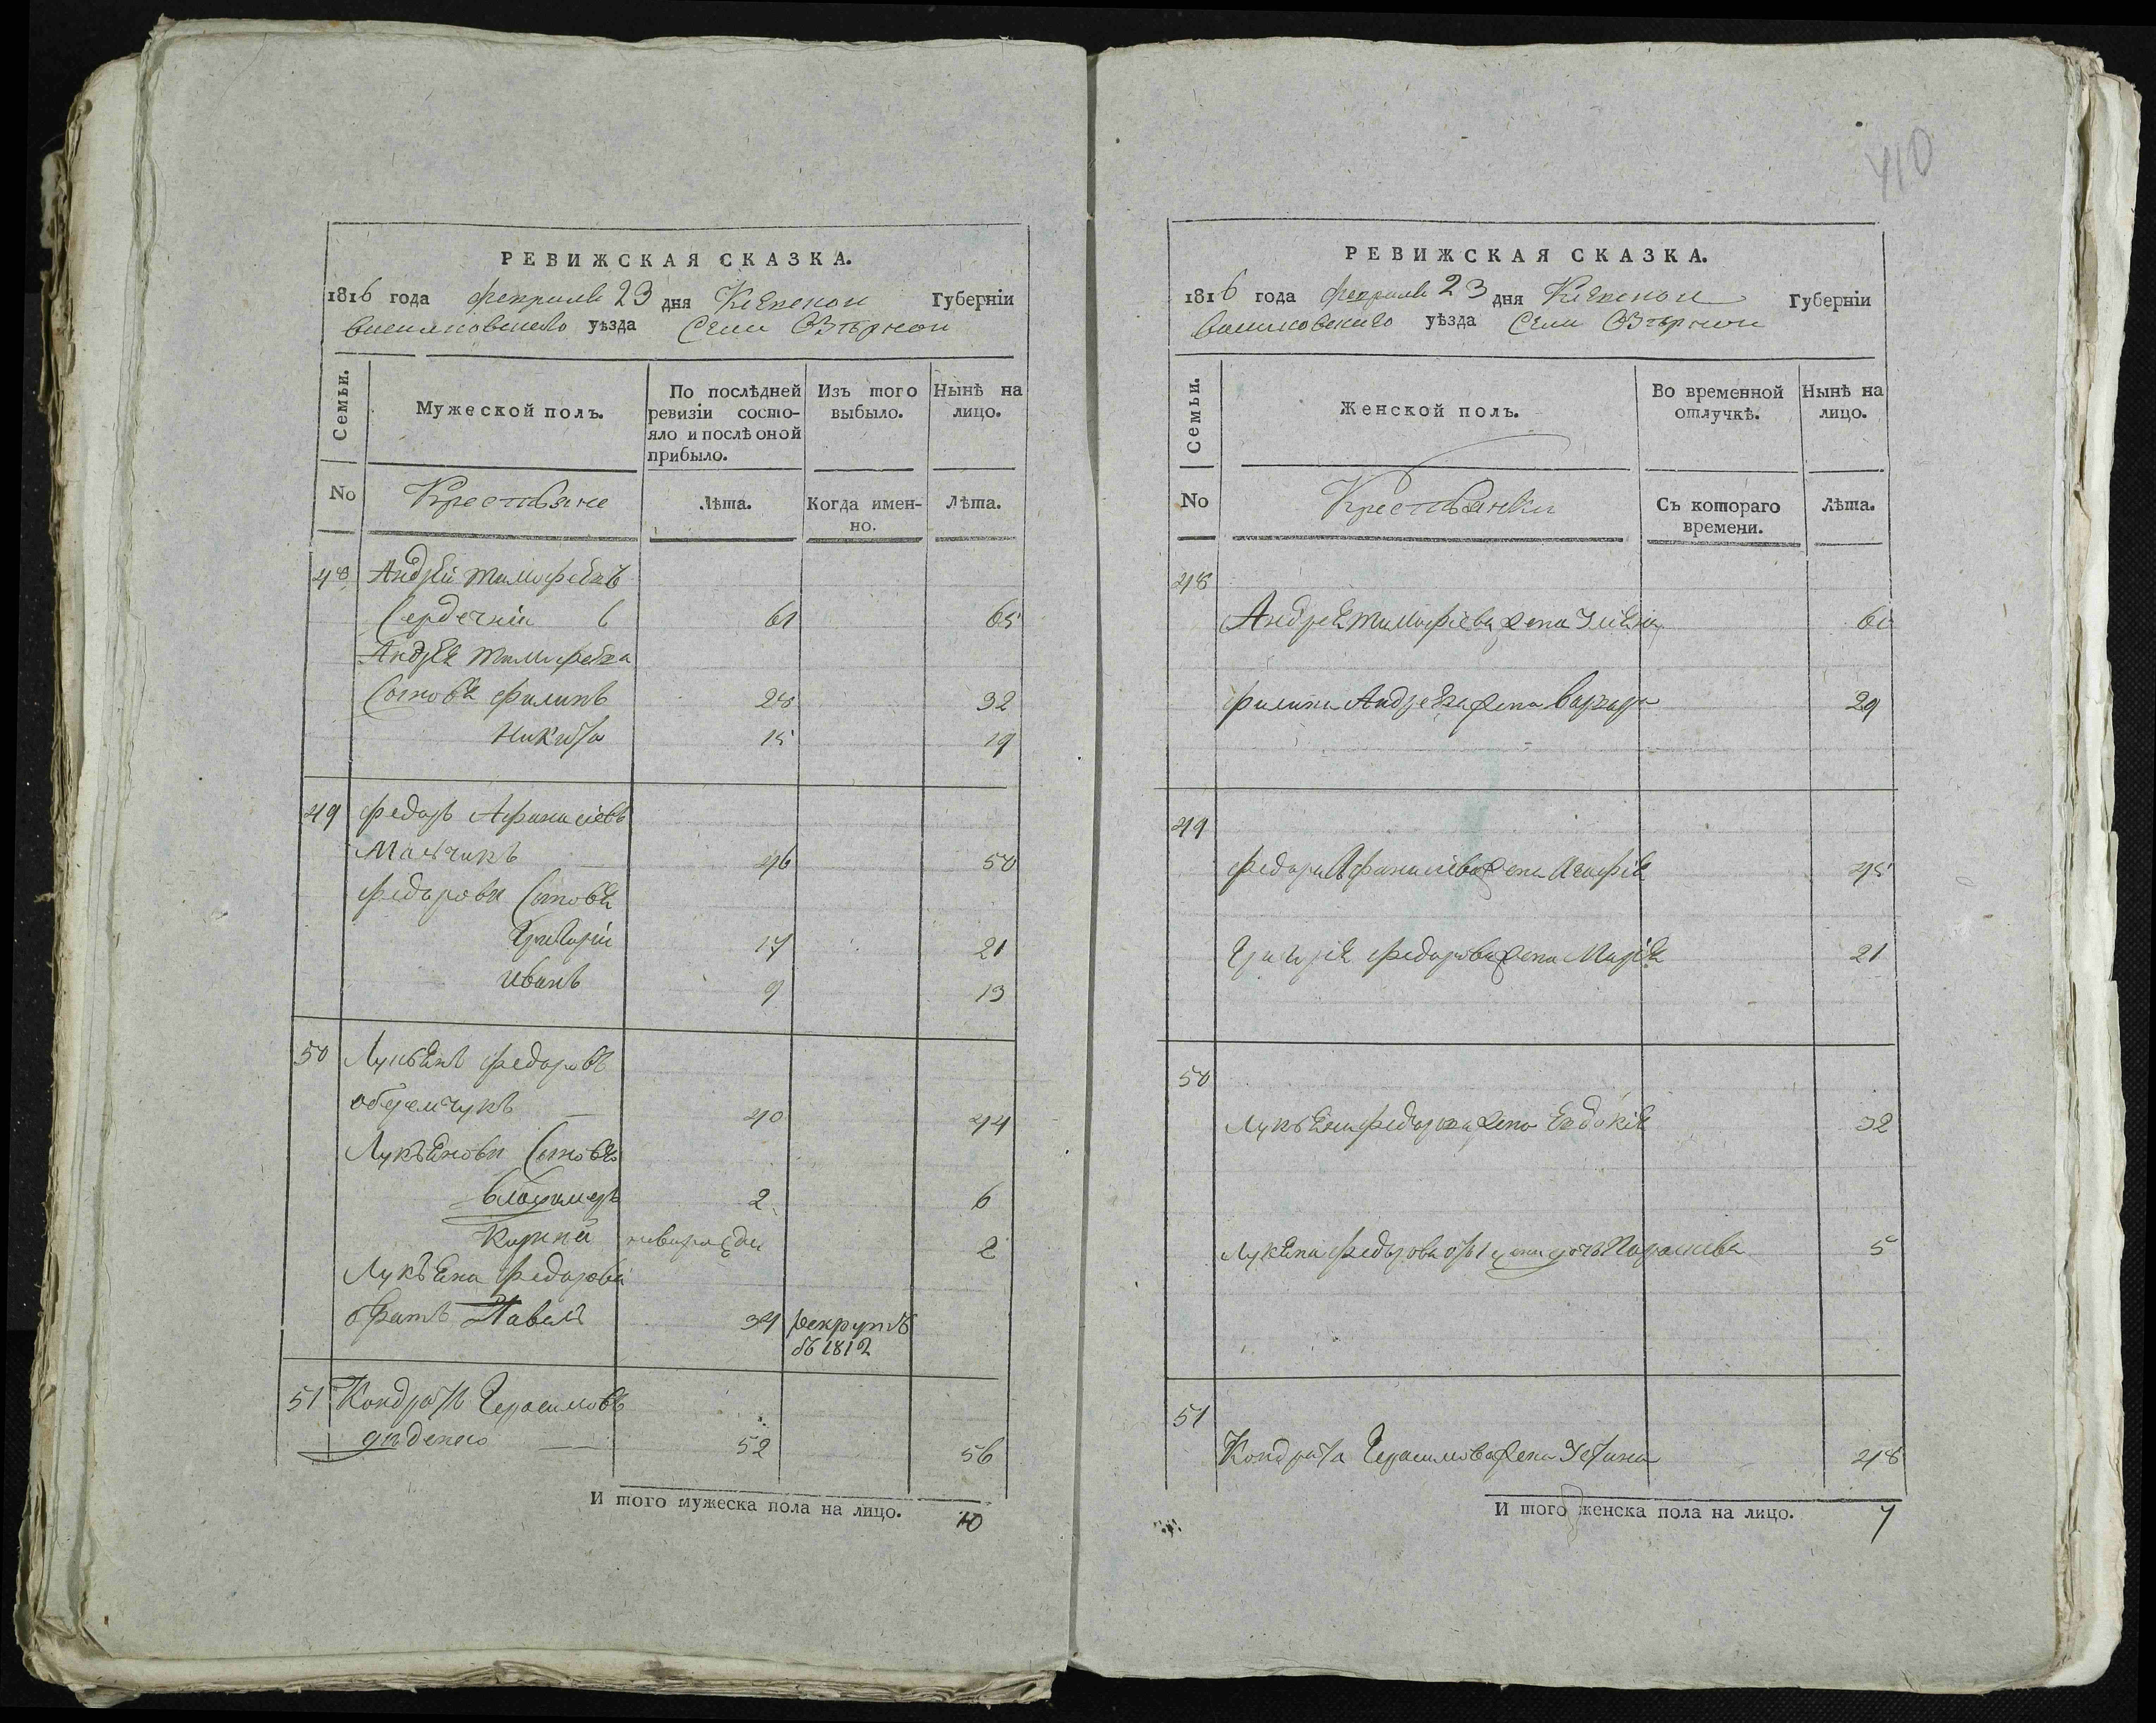 410
РЕВИЖСКАЯ СКАЗКА.
1816 года февраля 23 дня Кіевской Губерніи
васильковского уѣзда Села Озѣрной
Семьи.
Мужеской полъ.
По послѣдней ревизіи состо-
яло и послѣ оной
прибыло.
Изъ того
выбыло.
Нынѣ на
лицо.
No
Крестьяне
Лѣта.
Когда имен-
но.
Лѣта.
48 Андрѣй тимофѣевъ
Сердечній 61 65
Андрѣя тимофѣева
Сыновя филипъ 28 32
Никита 15 19
49 федоръ Афанасіевъ
46 50
федорови Сыновя
Григорій 17 21
иванъ 9 13
50 Лукъянъ федоровъ
оберемчукъ 40 44
Лукъянови Сыновя
владимеръ 2 6
Корній 2
Лукъяна федорова
братъ Павелъ 34 рекрутъ
въ 1812
51 Кондратъ Герасимовъ
діденко 52 56
И того мужеска пола на лицо. 10
РЕВИЖСКАЯ СКАЗКА.
1816 года февраля 23 дня Кіевской Губерніи
васильковского уѣзда Села Озѣрной
Семьи.
Женской полъ.
Во временной
отлучкѣ.
Нынѣ на
лицо.
No
Крестьянки
Съ котораго
времени.
Лѣта.
48
Андрея тимофіева жена 60
филипа Андреева жена варвара 29
49
федора Афанасіева жена Агафія 45
Григорія федорова жена Марія 21
50
Лукъяна федорова жена Евдокія 32
Лукяна федорова дочь Параскева 5
51
Кондрата Герасимова жена 48
И того женска пола на лицо. 7